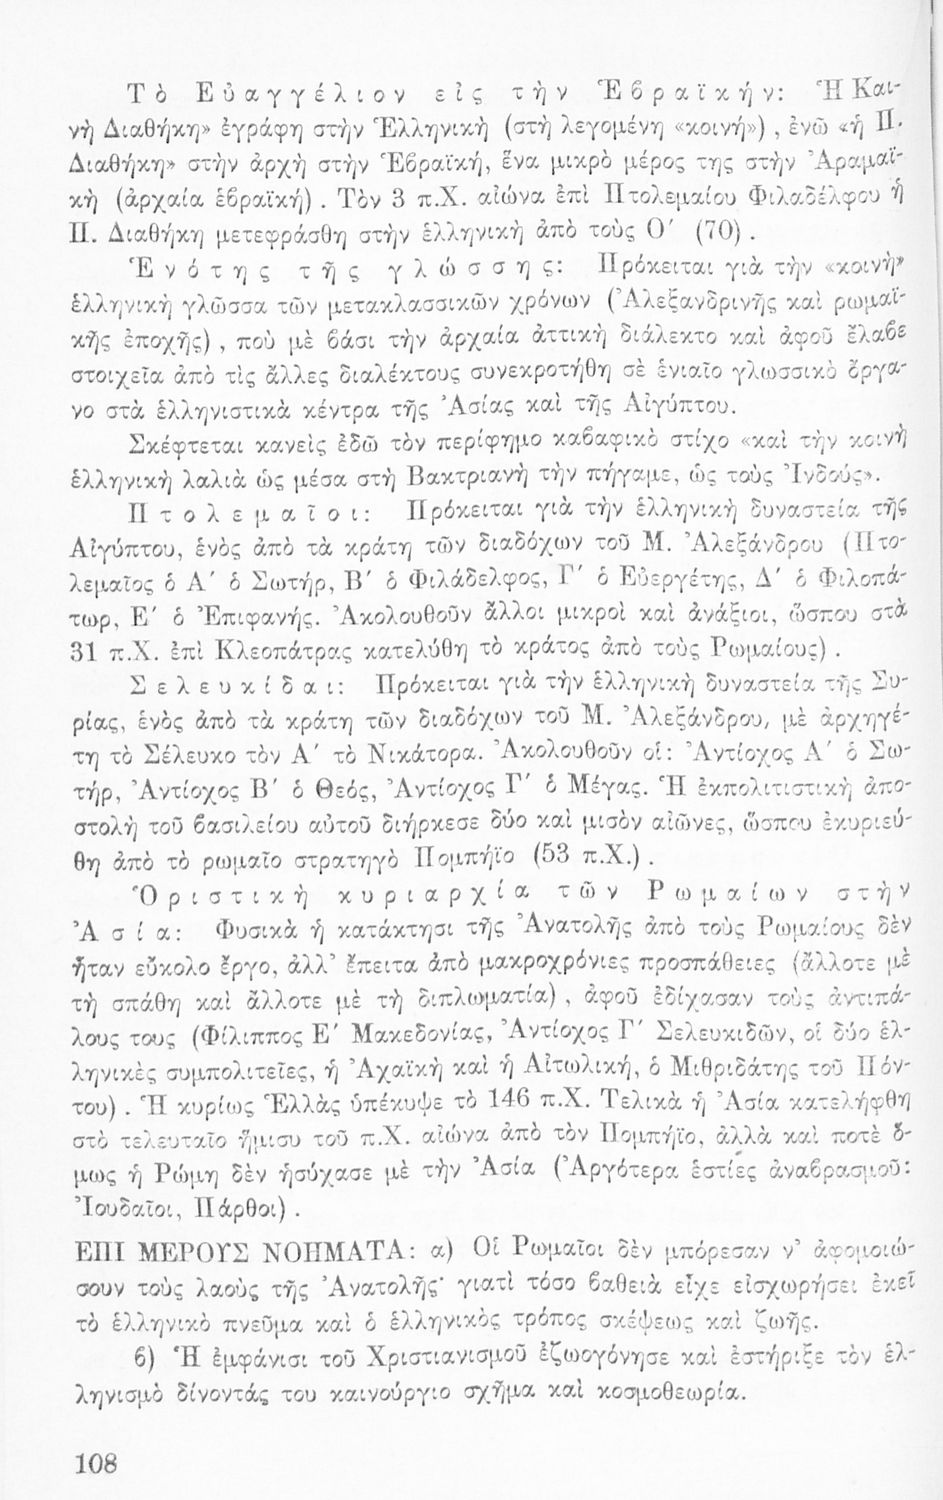 Τὸ Εὐαγγέλιον εἰς τὴν Ἑβραϊκήν: Ἡ Και-
νὴ Διαθήκη» ἐγράφη στὴν Ἑλληνικὴ (στὴ λεγομένη «κοινή») , ἐνῶ «ἡ Π.
Διαθήκη» στὴν ἀρχὴ στὴν Ἑβραϊκή, ἕνα μικρὸ μέρος της στὴν Ἀραμαϊ-
κὴ (ἀρχαία ἑβραϊκή) . Τὸν 3 π.Χ. αἰώνα ἐπὶ Πτολεμαίου Φιλαδέλφου ἡ
Π. Διαθήκη μετεφράσθη στὴν ἑλληνικὴ ἀπὸ τοὺς Ο΄ (70) .
Ἑνότης τῆς γλώσσης: Πρόκειται γιὰ τὴν «κοινὴ»
ἑλληνικὴ γλῶσσα τῶν μετακλασσικῶν χρόνων (Ἀλεξανδρινῆς καὶ ρωμαϊ-
κῆς ἐποχῆς) , ποὺ μὲ βάσι τὴν ἀρχαία ἀττικὴ διάλεκτο καὶ ἀφοῦ ἔλαβε
στοιχεῖα ἀπὸ τὶς ἄλλες διαλέκτους συνεκροτήθη σὲ ἑνιαῖο γλωσσικὸ ὄργα-
νο στὰ ἑλληνιστικὰ κέντρα τῆς Ἀσίας καὶ τῆς Αἰγύπτου.
Σκέφτεται κανεὶς ἐδῶ τὸν περίφημο καβαφικὸ στίχο «καὶ τὴν κοινὴ
ἑλληνικὴ λαλιὰ ὡς μέσα στὴ Βακτριανὴ τὴν πήγαμε, ὡς τοὺς Ἰνδούς».
Πτολεμαῖοι: Πρόκειται γιὰ τὴν ἑλληνικὴ δυναστεία τῆς
Αἰγύπτου, ἑνὸς ἀπὸ τὰ κράτη τῶν διαδόχων τοῦ Μ. Ἀλεξάνδρου (Πτο-
λεμαῖος ὁ Α΄ ὁ Σωτήρ, Β΄ ὁ Φιλάδελφος, Γ΄ ὁ Εὐεργέτης, Δ΄ ὁ Φιλοπά-
τωρ, Ε΄ ὁ Ἐπιφανής. Ἀκολουθοῦν ἄλλοι μικροὶ καὶ ἀνάξιοι, ὥσπου στὰ
31 π.Χ. ἐπὶ Κλεοπάτρας κατελύθη τὸ κράτος ἀπὸ τοὺς Ρωμαίους) .
Σελευκίδαι: Πρόκειται γιὰ τὴν ἑλληνικὴ δυναστεία τῆς Συ-
ρίας, ἑνὸς ἀπὸ τὰ κράτη τῶν διαδόχων τοῦ Μ. Ἀλεξάνδρου, μὲ ἀρχηγέ-
τη τὸ Σέλευκο τὸν Α΄ τὸ Νικάτορα. Ἀκολουθοῦν οἱ: Ἀντίοχος Α΄ ὁ Σω-
τήρ, Ἀντίοχος Β΄ ὁ Θεός, Ἀντίοχος Γ΄ ὁ Μέγας. Ἡ ἐκπολιτιστικὴ ἀπο-
στολὴ τοῦ βασιλείου αὐτοῦ διήρκεσε δύο καὶ μισὸν αἰῶνες, ὥσπου ἐκυριεύ-
θη ἀπὸ τὸ ρωμαῖο στρατηγὸ Πομπήϊο (53 π.Χ.) .
Ὁριστικὴ κυριαρχία τῶν Ρωμαίων στὴν
Ἀσία: Φυσικὰ ἡ κατάκτησι τῆς Ἀνατολῆς ἀπὸ τοὺς Ρωμαίους δὲν
ἦταν εὔκολο ἔργο, ἀλλ' ἔπειτα ἀπὸ μακροχρόνιες προσπάθειες (ἄλλοτε μὲ
τὴ σπάθη καὶ ἄλλοτε μὲ τὴ διπλωματία) , ἀφοῦ ἐδίχασαν τοὺς ἀντιπά-
λους τους (Φίλιππος Ε΄ Μακεδονίας, Ἀντίοχος Γ΄ Σελευκιδῶν, οἱ δύο ἑλ-
ληνικὲς συμπολιτεῖες, ἡ Ἀχαϊκὴ καὶ ἡ Αἰτωλική, ὁ Μιθριδάτης τοῦ Πόν-
του) . Ἡ κυρίως Ἑλλὰς ὑπέκυψε τὸ 146 π.Χ. Τελικὰ ἡ Ἀσία κατελήφθη
στὸ τελευταῖο ἥμισυ τοῦ π.Χ. αἰώνα ἀπὸ τὸν Πομπήϊο, ἀλλὰ καὶ ποτὲ ὅ-
μως ἡ Ρώμη δὲν ἡσύχασε μὲ τὴν Ἀσία (Ἀργότερα ἑστίες ἀναβρασμοῦ:
Ἰουδαῖοι, Πάρθοι) .
ΕΠΙ ΜΕΡΟΥΣ ΝΟΗΜΑΤΑ: α) Οἱ Ρωμαῖοι δὲν μπόρεσαν ν' ἀφομοιώ-
σουν τοὺς λαοὺς τῆς Ἀνατολῆς· γιατὶ τόσο βαθειὰ εἶχε εἰσχωρήσει ἐκεῖ
τὸ ἑλληνικὸ πνεῦμα καὶ ὁ ἑλληνικὸς τρόπος σκέψεως καὶ ζωῆς.
β) Ἡ ἐμφάνισι τοῦ Χριστιανισμοῦ ἐζωογόνησε καὶ ἐστήριξε τὸν ἑλ-
ληνισμὸ δίνοντάς του καινούργιο σχῆμα καὶ κοσμοθεωρία.
108